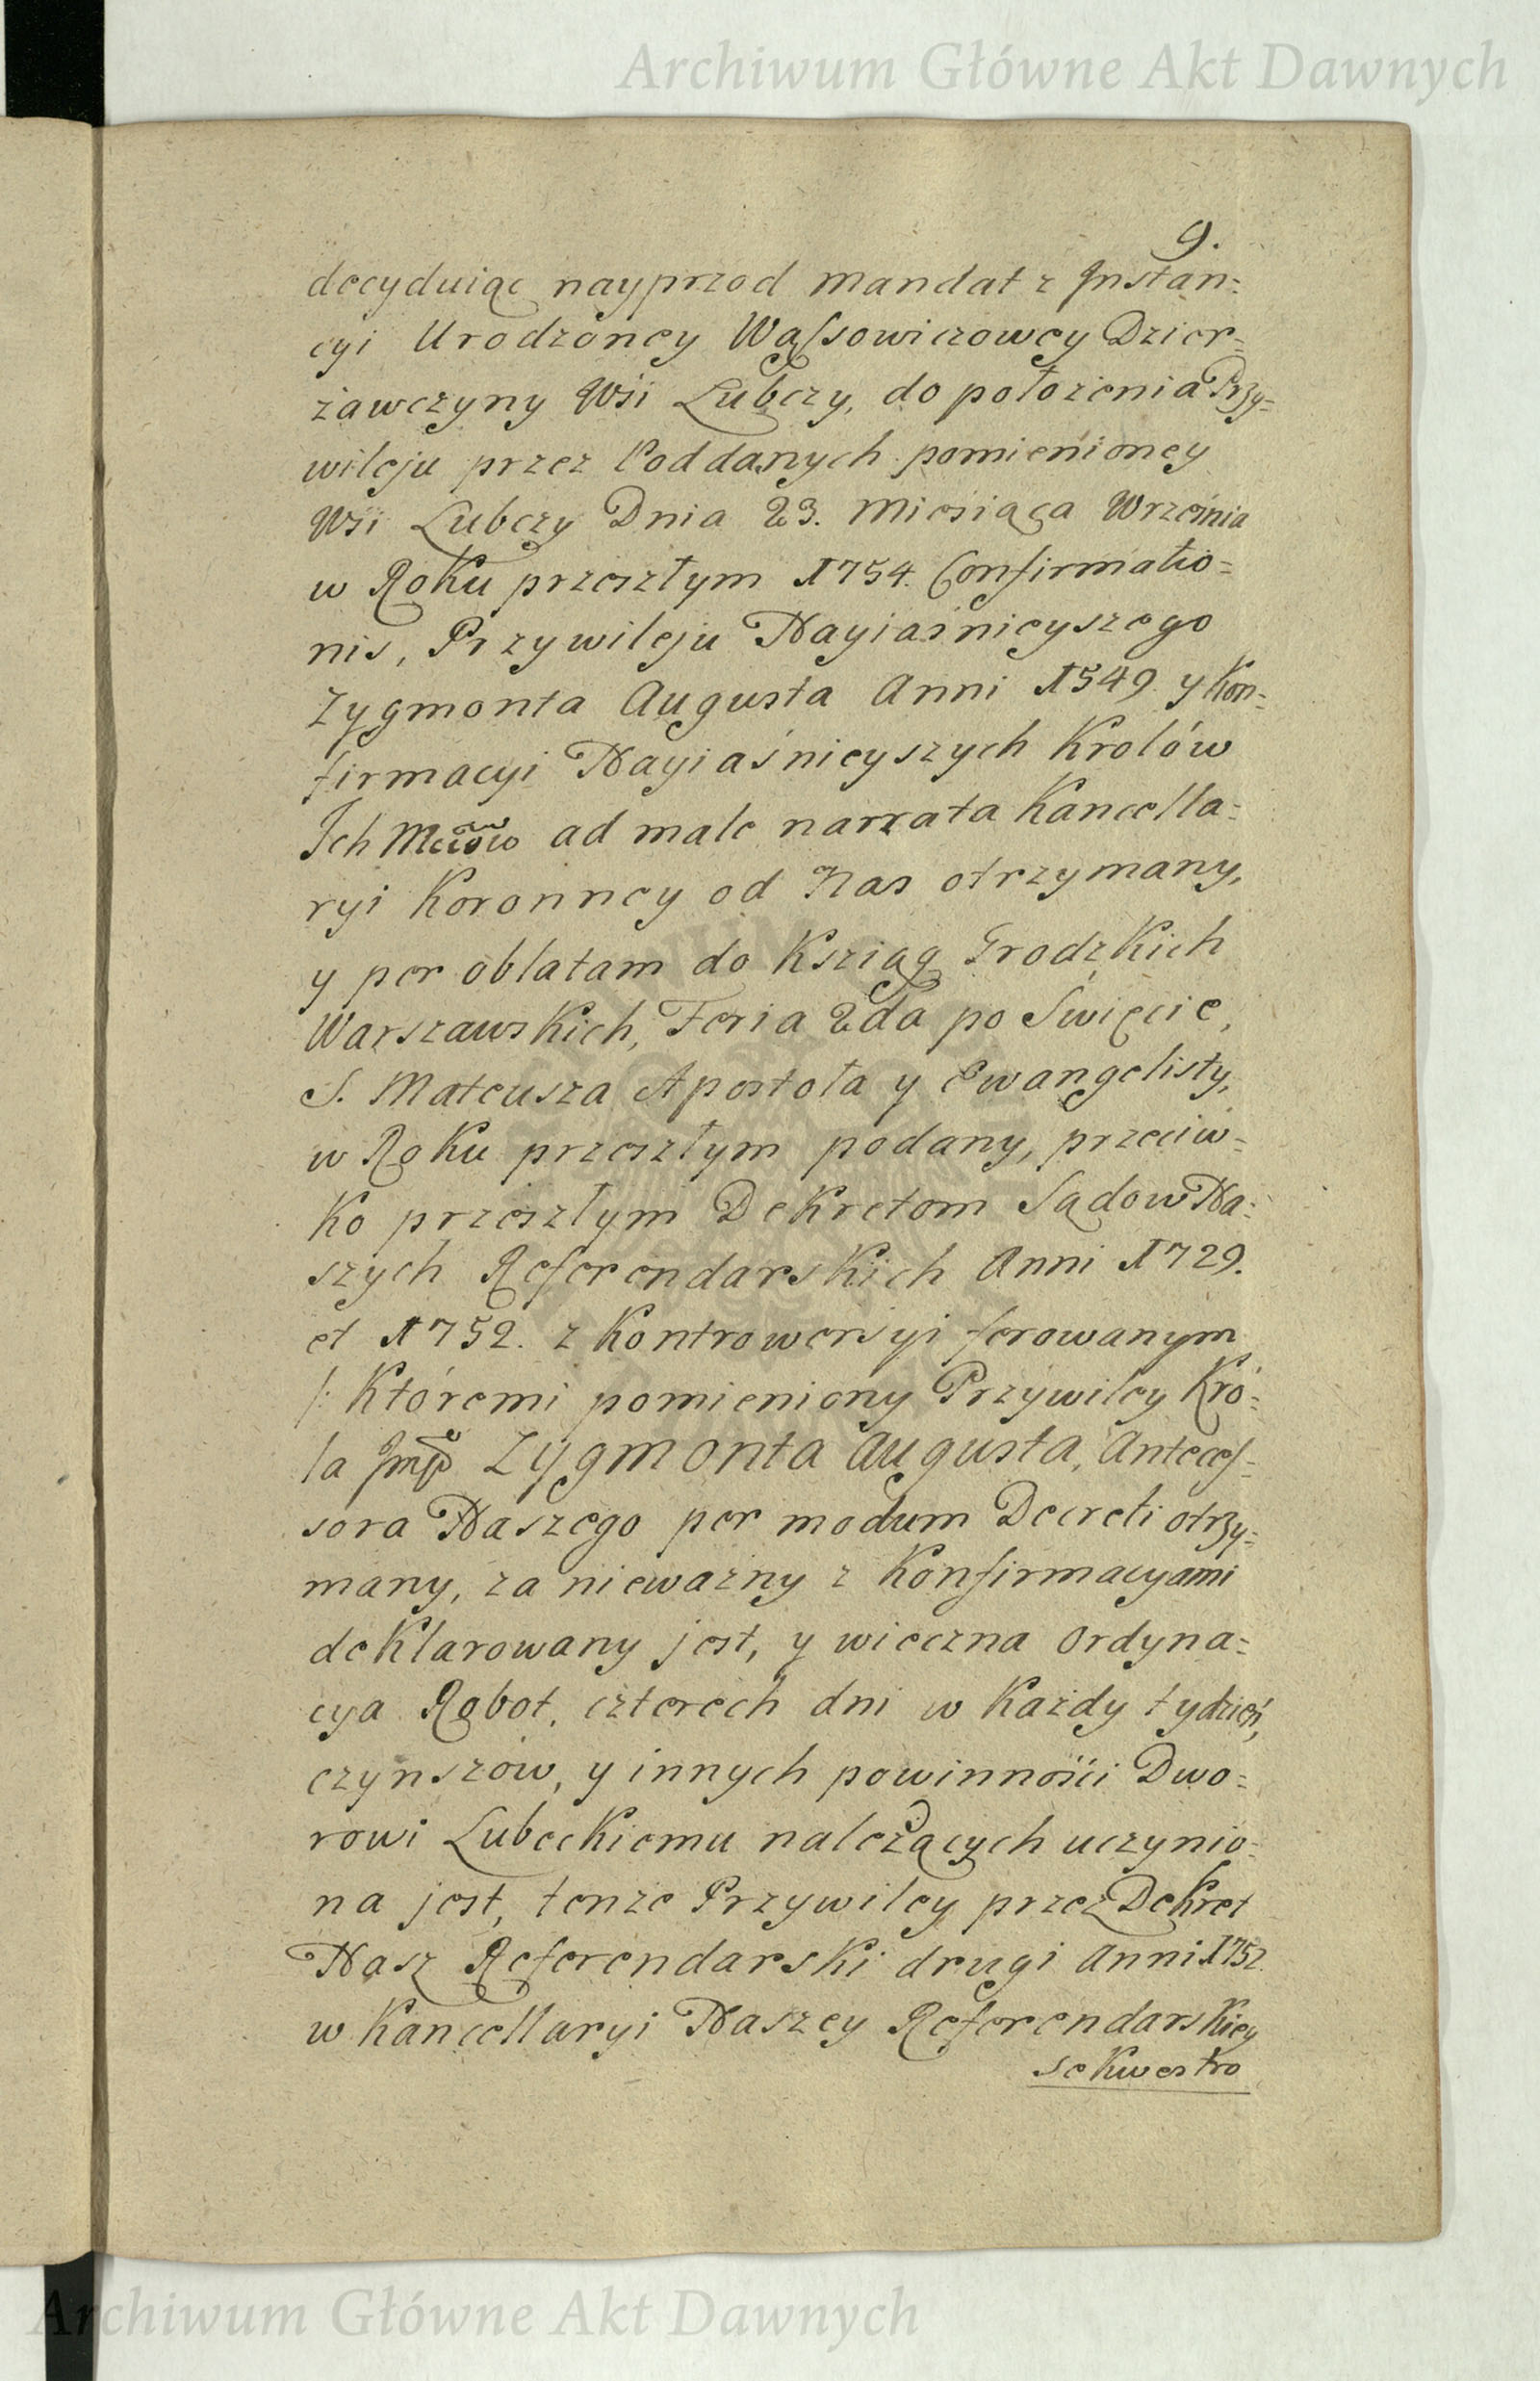 Archiwum Główne Akt Dawnych
9.
decyduiąc nayprzod Mandat z Jnstan=
cyi Urodzoney Wąssowiczowey Dzier=
żawczyny Wsi Lubczy, do położenia Przy=
wileju przez Poddanych pomienioney
Wsi Lubczy Dnia 23. Miesiąca Wrzesnia
w Roku przeszłym 1754. Confirmatio=
nis, Przywileju Nayiaśnieyszego
Zygmonta Augusta Anni 1549. y Kon=
firmacyi Nayiaśnieyszych Krolów
Ich Mciów ad male narrata Kancella=
ryi Koronney od Nas otrzymany,
y per oblatam do Ksziąg Grodzkich
Warszawskich, Feria 2da po Swięcie,
S. Mateusza Apostoła y Ewangelisty,
w Roku przeszłym podany, przeciw=
ko przeszłym Dekretom Sądow Na=
szych Referendarskich Anni 1729.
et 1752. z Kontrowersyi ferowanym
/: Któremi pomieniony Przywiley Kró=
la Zygmonta Augusta, Anteces=
sora Naszego per modum Decreti otrzy=
many, za nieważny z Konfirmacyami
deklarowany jest, y wieczna Ordyna=
cya Robot, czterech dni w Każdy tydzień,
czynszów, y innych powinności Dwo=
rowi Lubeckiemu należących uczynio=
na jest, tenże Przywiley przez Dekret
Nasz Referendarski drugi Anni 1752.
w Kancellaryi Naszey Referendarskiey
sekwestro
Archiwum Główne Akt Dawnych